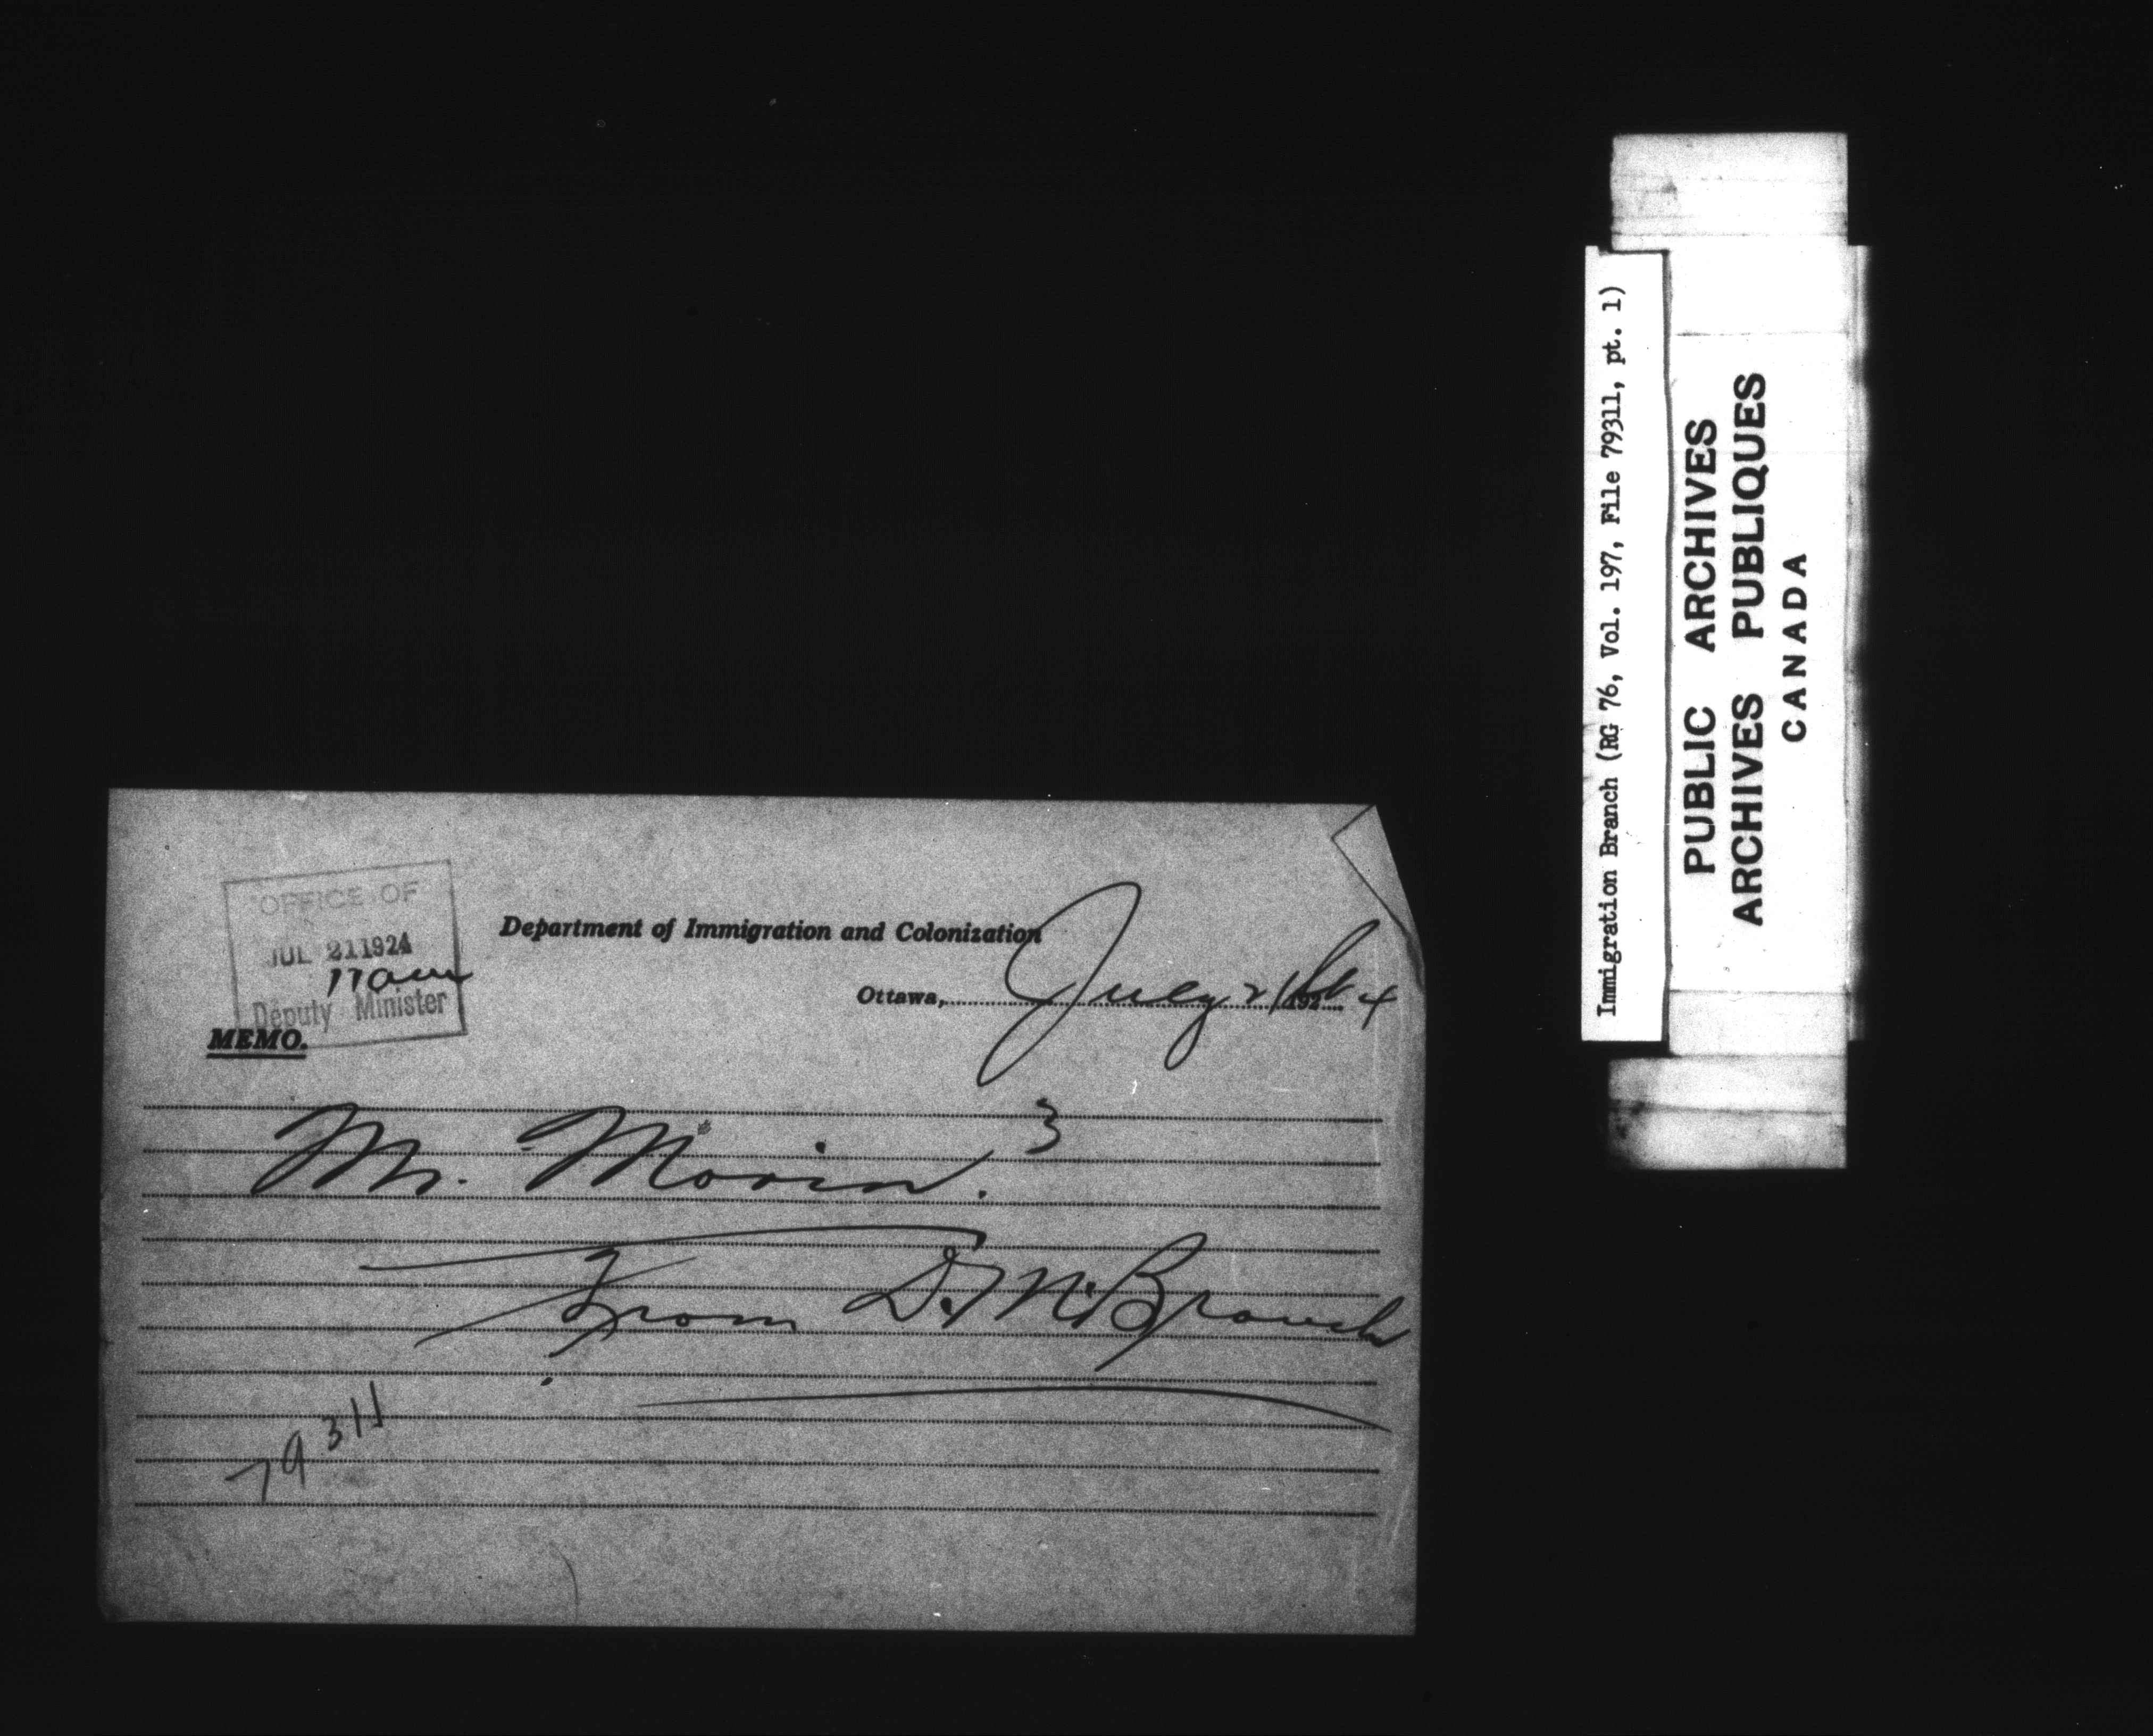 OFFICE OF
JUL 21 1924
11 am
Deputy Minister
Department of Immigration and Colonization
Ottawa, July 21st 1924
MEMO.
Mr. Morin.
3
From D.M. Branch
79311
Immigration Branch (RG 76, Vol. 197, File 79311, pt. 1)
PUBLIC ARCHIVES
ARCHIVES PUBLIQUES
CANADA